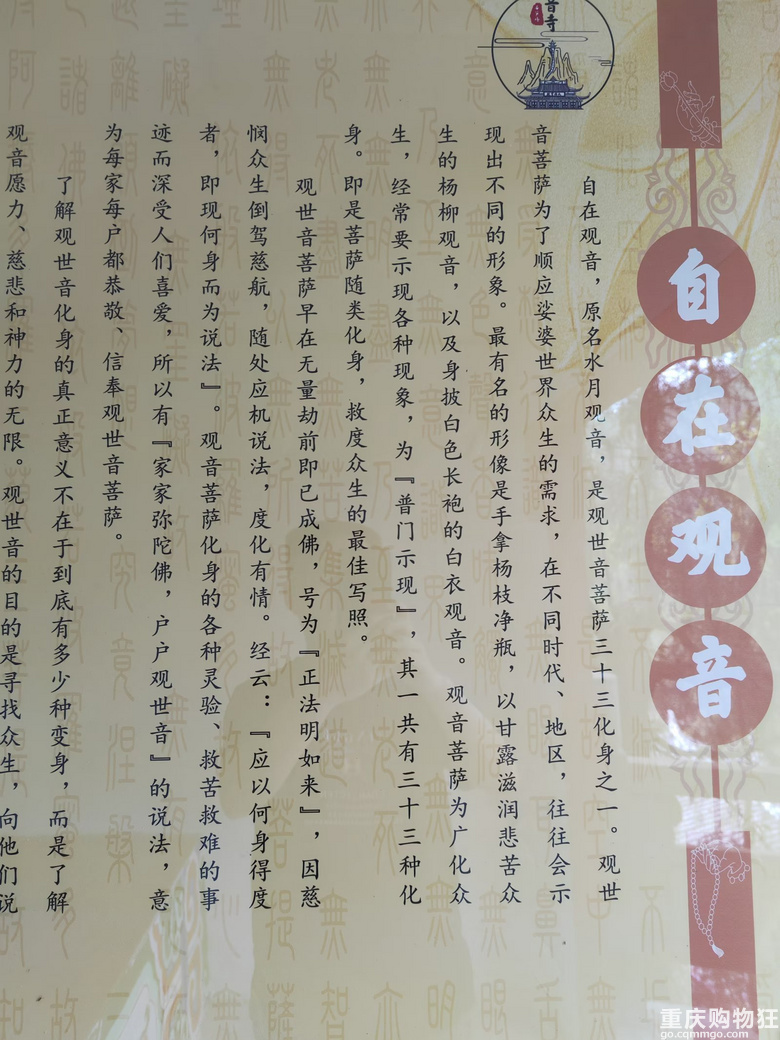 音寺
自在观音
自在观音，原名水月观音，是观世音菩萨三十三化身之一。观世
音菩萨为了顺应娑婆世界众生的需求，在不同时代、地区，往往会示
现出不同的形象。最有名的形像是手拿杨枝净瓶，以甘露滋润悲苦众
生的杨柳观音，以及身披白色长袍的白衣观音。观音菩萨为广化众
生，经常要示现各种现象，为『普门示现』，其一共有三十三种化
身。即是菩萨随类化身，救度众生的最佳写照。
观世音菩萨早在无量劫前即已成佛，号为『正法明如来』，因慈
悯众生倒驾慈航，随处应机说法，度化有情。经云：『应以何身得度
者，即现何身而为说法』。观音菩萨化身的各种灵验、救苦救难的事
迹而深受人们喜爱，所以有『家家弥陀佛，户户观世音』的说法，意
为每家每户都恭敬、信奉观世音菩萨。
了解观世音化身的真正意义不在于到底有多少种变身，而是了解
观音愿力、慈悲和神力的无限。观世音的目的是寻找众生，向他们说
重庆购物狂
go.cqmmgo.com